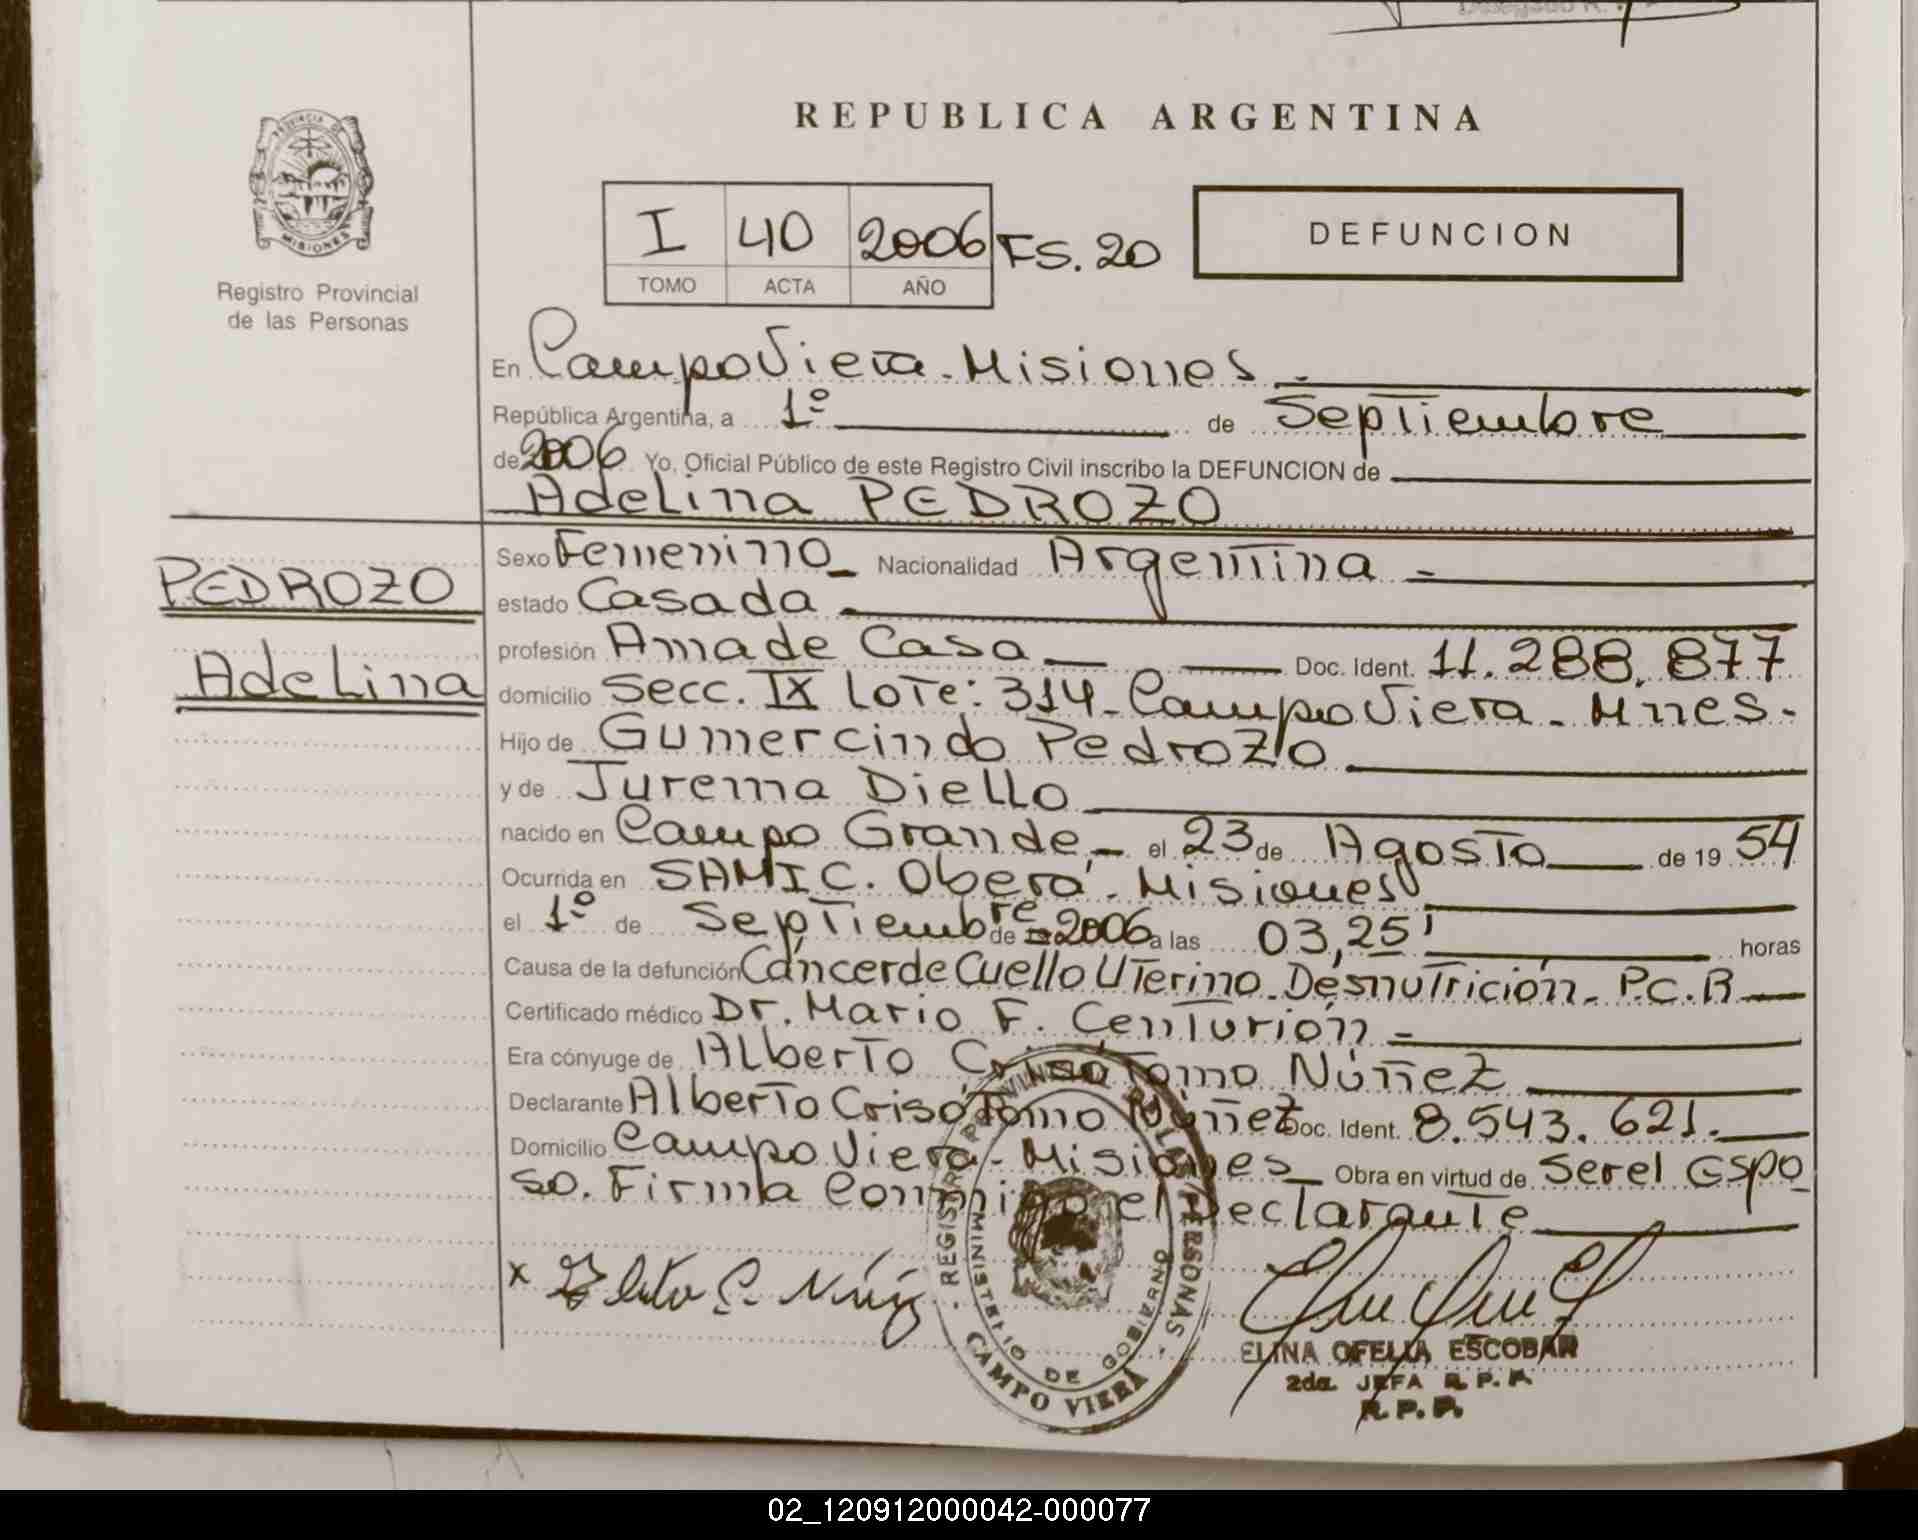 REPUBLICA ARGENTINA
PROVINCIA DE
MISIONES
Registro Provincial
de las Personas
I 40 2006 FS. 20
TOMO ACTA AÑO
DEFUNCION
En Campo Viera - Misiones -
República Argentina, a 1º de Septiembre
de 2006 Yo, Oficial Público de este Registro Civil inscribo la DEFUNCION de
Adelina PEDROZO
PEDROZO
Adelina
Sexo Femenino - Nacionalidad Argentina -
estado Casada -
profesión Ama de Casa Doc. Ident. 11.288.877
domicilio Secc. IX Lote: 314 - Campo Viera - Mnes -
Hijo de Gumercindo Pedrozo
y de Jurema Diello
nacido en Campo Grande, - el 23 de Agosto de 19 54
Ocurrida en SAMIC. Oberá - Misiones
el 1º de Septiembre de 2006 a las 03,25' horas
Causa de la defunción Cáncer de Cuello Uterino - Desnutrición - P.C.R
Certificado médico Dr. Mario F. Centurión -
Era cónyuge de Alberto Crisótomo Núñez
Declarante Alberto Crisótomo Núñez Doc. Ident. 8.543.621.
Domicilio Campo Viera - Misiones Obra en virtud de Ser el Espo
so. Firma Conmigo el Declarante
REGISTRO PROVINCIAL DE LAS PERSONAS
MINISTERIO DE GOBIERNO
CAMPO VIERA
ELINA OFELIA ESCOBAR
2da. JEFA R. P. P.
R. P. P.
02_120912000042-000077